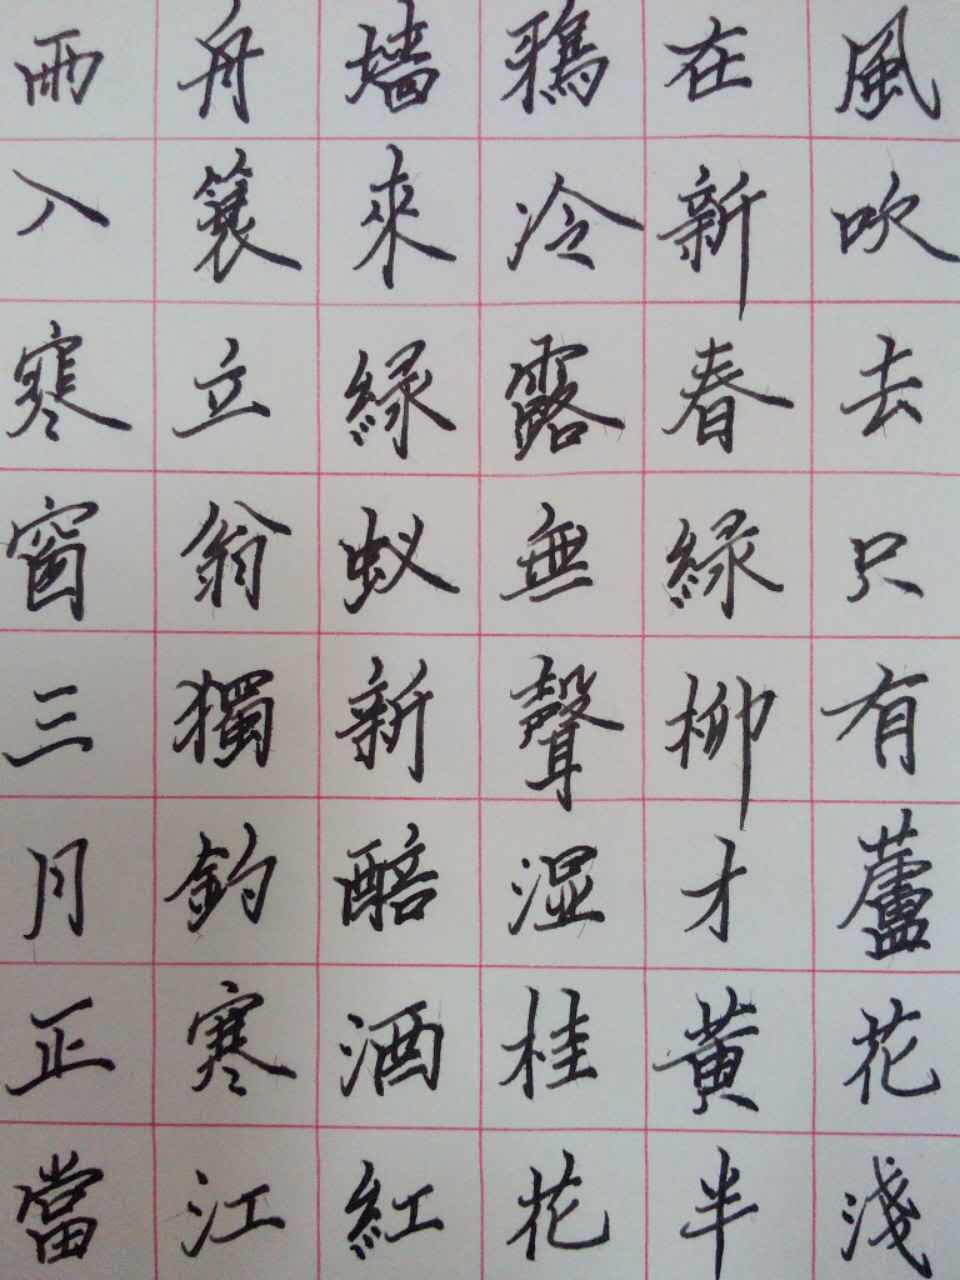 風吹去只有蘆花淺
在新春綠柳才黃半
鴉冷露無聲濕桂花
墙來綠蚁新醅酒紅
舟簑立翁獨釣寒江
雨入寒窗三月正當